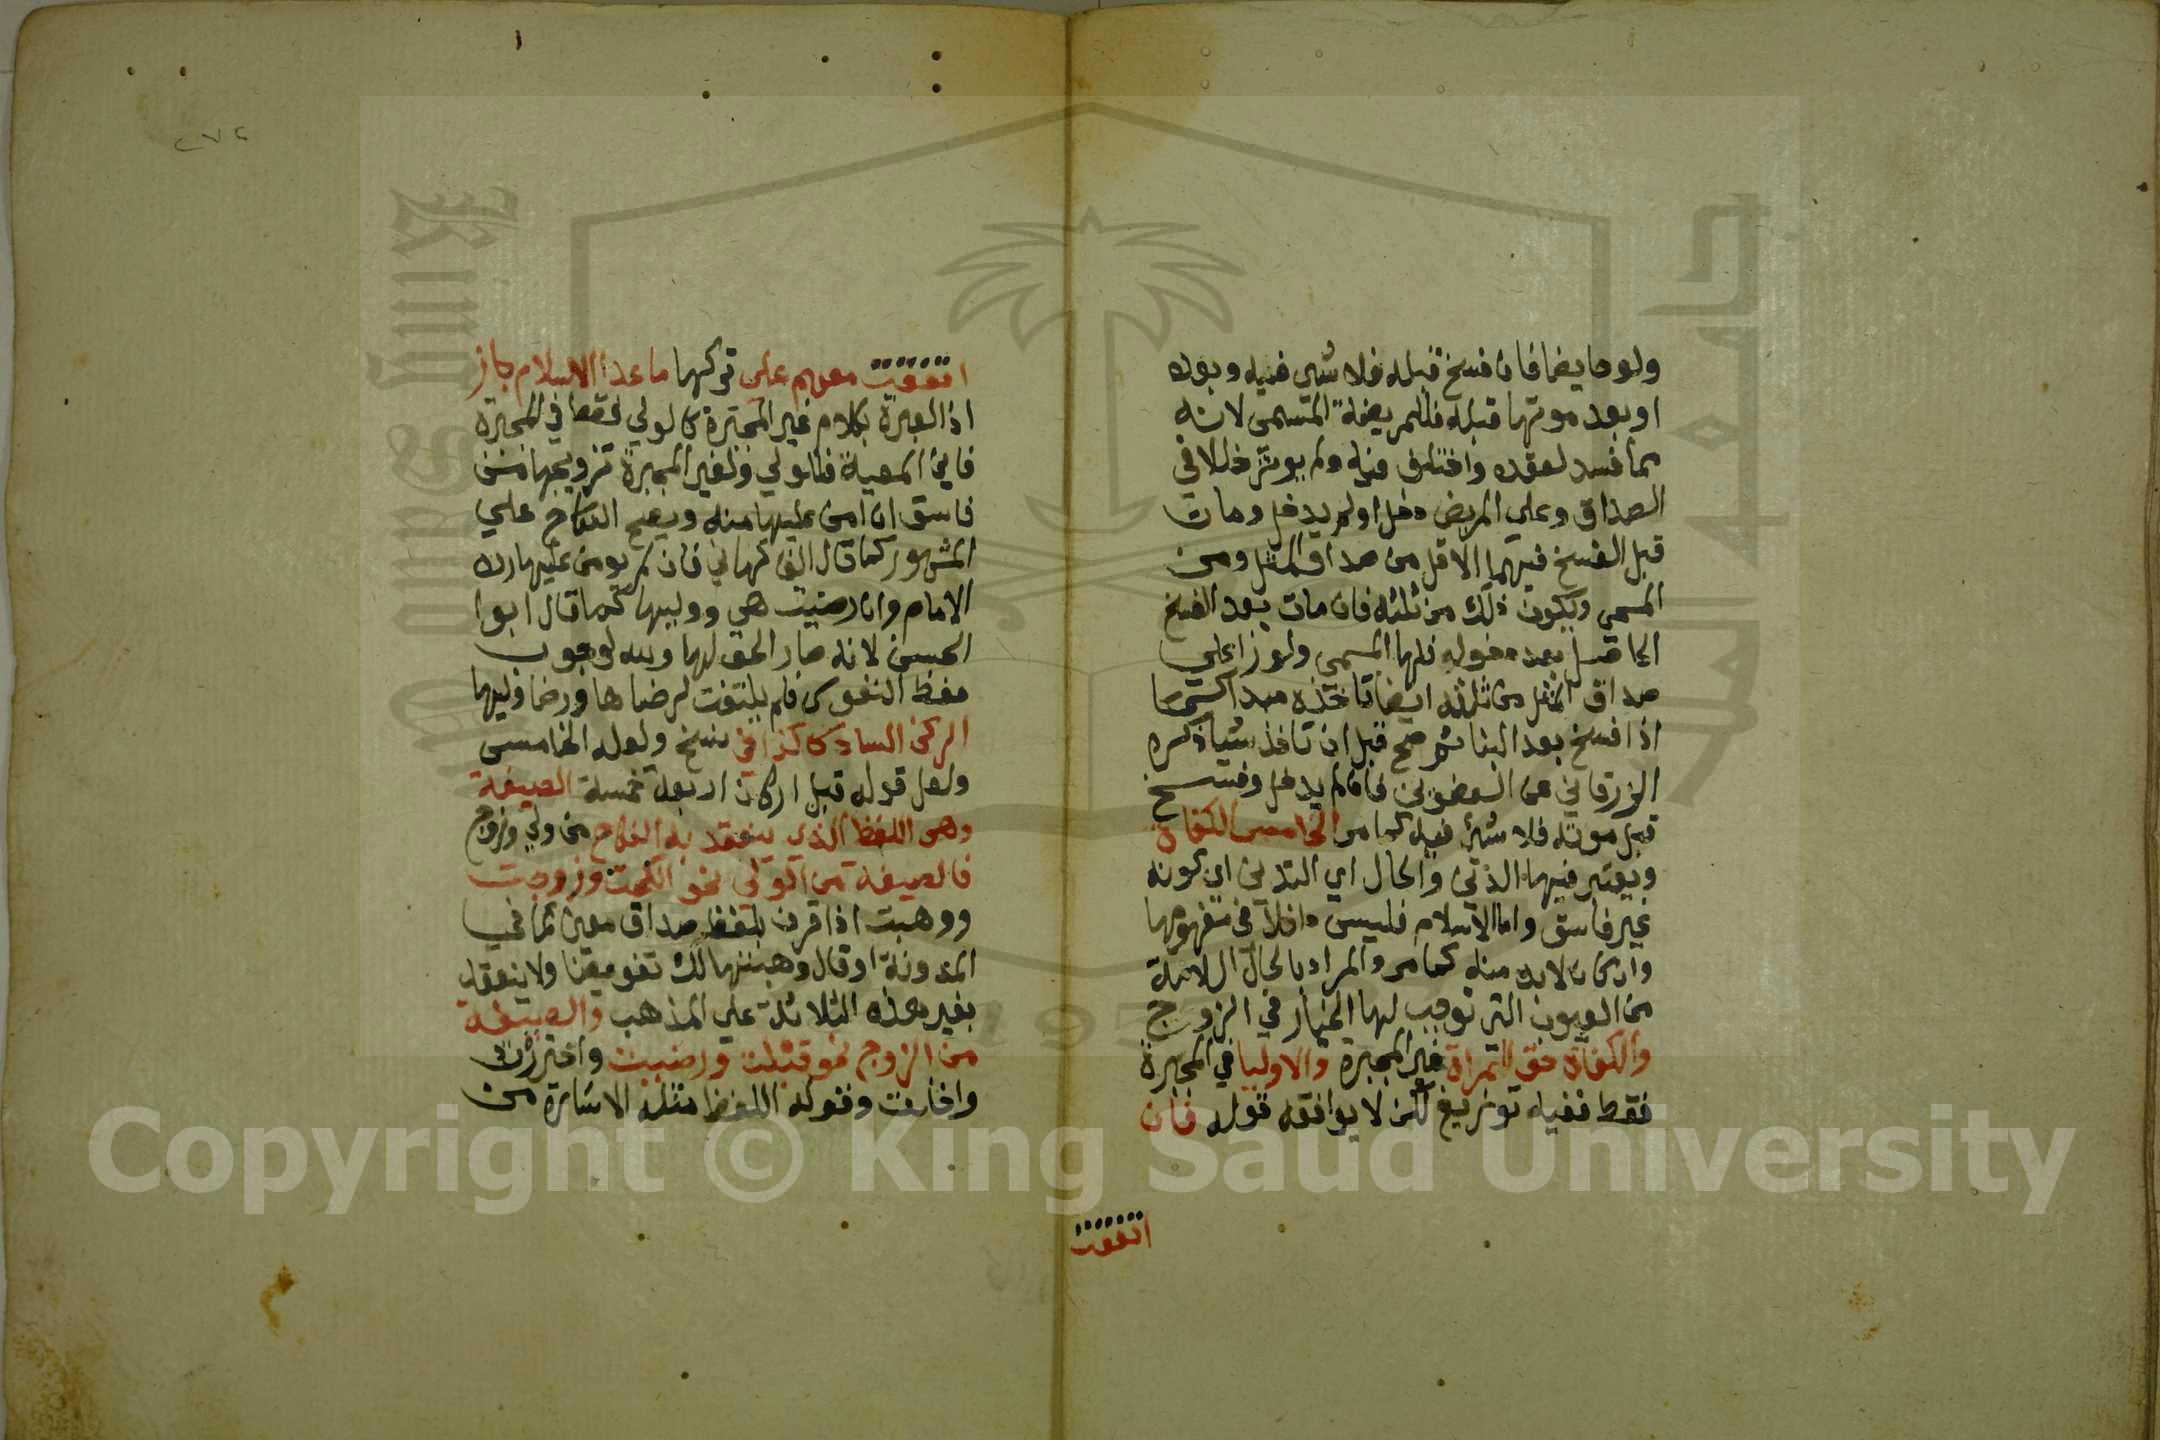 ولو حايضا فان فسخ قبله فلا شي فيه وبعده
او بعد موتها قبله فللمريضة المسمى لانه
مما فسد لعقده واختلف فيه ولم يوثر خللا في
الصداق وعلى المريض دخل اولم يدخل ومات
قبل الفسخ فيهما الاقل من صداق المثل ومن
المسمى ويكون ذلك من ثلثه فان مات بعد الفسخ
الحاصل بعد دخوله فلها المسمى ولو زاد على
صداق المثل من ثلثه ايضا تاخذه مبدا
اذا فسخ بعد البنا ثم صح قبل ان تاخذ شيا ذكره
الزرقاني عن فان لم يدخل وفسخ
قبل موته فلا شي فيه كما مر الخامس الكفاة
ويعتبر فيها الدين والحال اي التدين اي كونه
غير فاسق واما الاسلام فليس داخلا في مفهومها
وان كان لابد منه كما مر والمراد بالحال السلامة
من العيوب التي توجب لها الخيار في الزوج
والكفاة حق للمراة غير المجبرة والاوليا في المجبرة
فقط ففيه توزيع لكن لا يوافقه قوله فان
اتفقت
٢٧٢
اتفقت معهم على تركها ما عدا الاسلام جاز
اذ العبرة بكلام غير المجبرة كالولي فقط في المجبرة
فللولي ولغير المجبرة تزويجها من
فاسق ان امن عليها منه ويصح النكاح علي
المشهور كما قال الفاكهاني فان لم يومن عليها رده
الامام وان رضيت هي ووليها كما قال ابو ا
الحسن لانه صار الحق لها ولله لوجوب
حفظ النفوس فلم يلتفت لرضاها ورضا وليها
الركن السادس كذا في نسخ ولعله الخامس
ولعل قوله قبل اركان اربعة خمسة الصيغة
وهي اللفظ الذي ينعقد به النكاح من ولي وزوج
فالصيغة من الولي نحو انكحت وزوجت
ووهبت اذا قرن بلفظ صداق معين كما في
المدونة او قال وهبتها لك تفويضا ولا ينعقد
بغير هذه الثلاثة على المذهب والصيغة
من الزوج نحو قبلت ورضيت واخترت
وقوله اللفظ مثله الاشارة من
Copyright © King Saud University